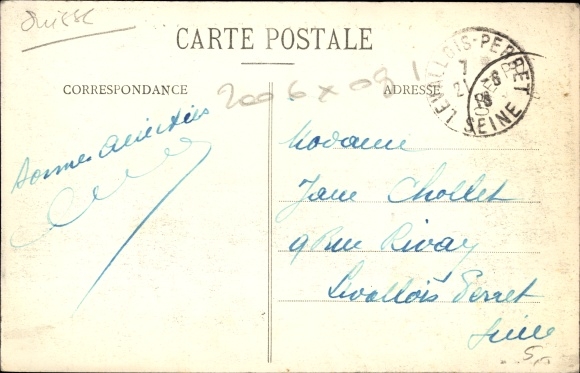 Suisse
CARTE POSTALE
CORRESPONDANCE
ADRESSE
2006 x 09
LEVALLOIS-PERRET
SEINE
Bonnes Amitiés
Madame
Jane Chollet
9 Rue Rivay
Levallois Perret
Seine